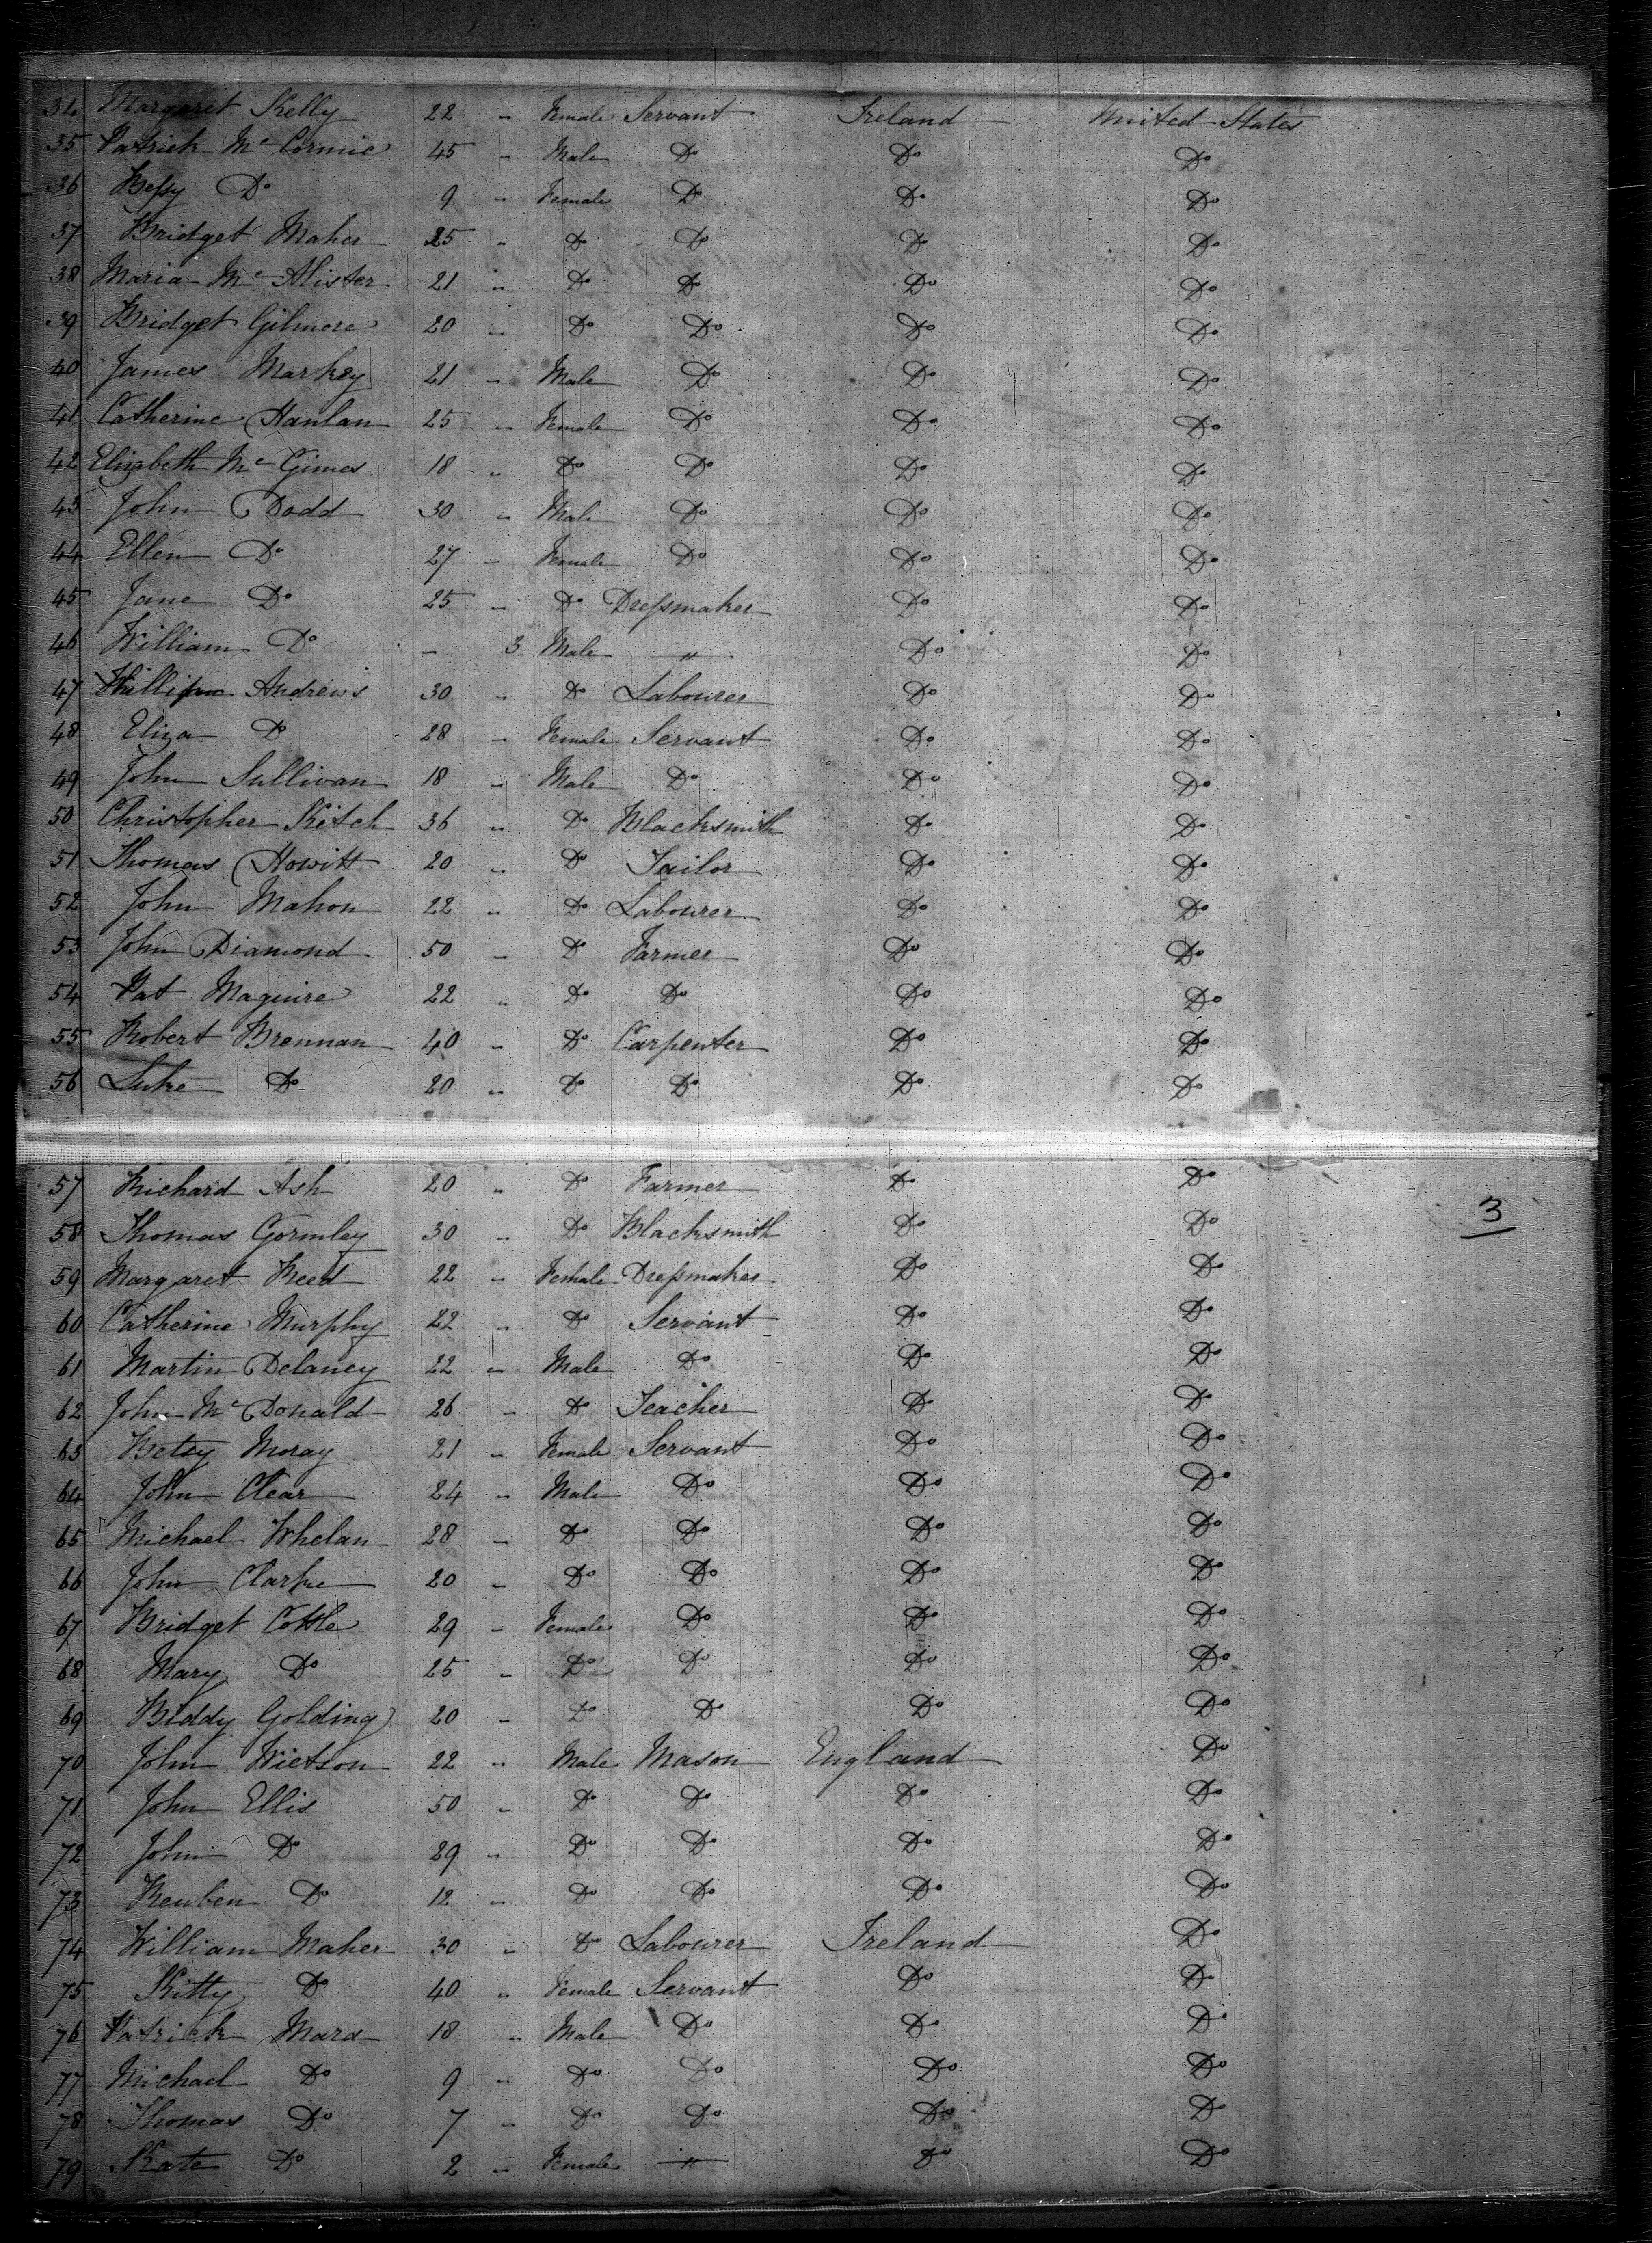 34 Margaret Kelly 22 " Female Servant Ireland United States
35 Patrick McCormic 45 " Male Do Do Do
36 Bessy Do 9 " Female Do Do Do
37 Bridget Maher 25 " Do Do Do Do
38 Maria McAlister 21 " Do Do Do Do
39 Bridget Gilmore 20 " Do Do Do Do
40 James Markey 21 " Male Do Do Do
41 Catherine Hanlan 25 " Female Do Do Do
42 Elizabeth McGimes 18 " Do Do Do Do
43 John Dodd 30 " Male Do Do Do
44 Ellen Do 27 " Female Do Do Do
45 Jane Do 25 " Do Dressmaker Do Do
46 William Do - 3 Male " Do Do
47 Andrews 30 " Do Labourer Do Do
48 Eliza Do 28 " Female Servant Do Do
49 John Sullivan 18 " Male Do Do Do
50 Christopher Ketch 36 " Do Blacksmith Do Do
51 Thomas Howitt 20 " Do Tailor Do Do
52 John Mahon 22 " Do Labourer Do Do
53 John Diamond 50 " Do Farmer Do Do
54 Pat Maguire 22 " Do Do Do Do
55 Robert Brennan 40 " Do Carpenter Do Do
56 Luke Do 20 " Do Do Do Do
57 Richard Ash 20 " Do Farmer Do Do
3
58 Thomas Gormley 30 " Do Blacksmith Do Do
59 Margaret Reed 22 " Female Dressmaker Do Do
60 Catherine Murphy 22 " Do Servant Do Do
61 Martin Delaney 22 " Male Do Do Do
62 John McDonald 26 " Do Teacher Do Do
63 Betsy Moray 21 " Female Servant Do Do
64 John Clear 24 " Male Do Do Do
65 Michael Whelan 28 " Do Do Do Do
66 John Clarke 20 " Do Do Do Do
67 Bridget Cottle 29 " Female Do Do Do
68 Mary Do 25 " Do Do Do Do
69 Biddy Golding 20 " Do Do Do Do
70 John 22 " Male Mason England Do
71 John Ellis 50 " Do Do Do Do
72 John Do 29 " Do Do Do Do
73 Reuben Do 12 " Do Do Do Do
74 William Maher 30 " Do Labourer Ireland Do
75 Kitty Do 40 " Female Servant Do Do
76 Patrick Mara 18 " Male Do Do Do
77 Michael Do 9 " Do Do Do Do
78 Thomas Do 7 " Do Do Do Do
79 Kate Do 2 " Female " Do Do